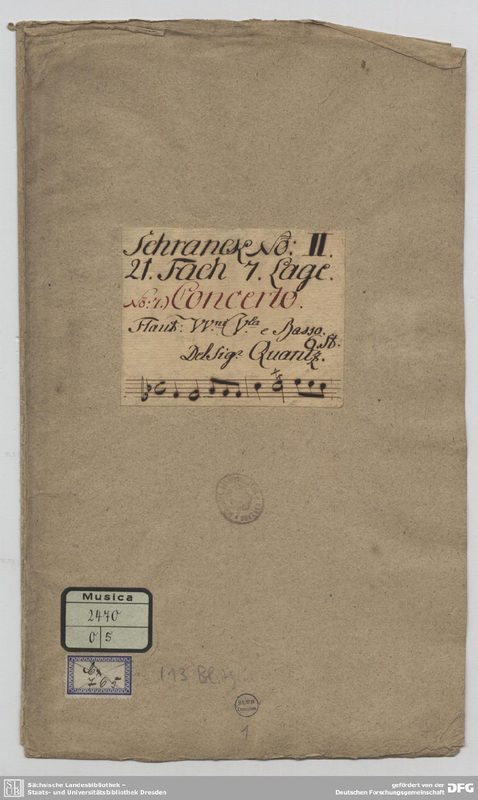 Schranck No: II.
21. Fach 7. Lage.
No: 7.) Concerto.
Flaut: VVni Vla e Basso.
9. St.
Del Sigr Quantz.
Musica
2470
O 5
Cx
765
113 Bl.
SLUB
Dresden
1
SLUB
Sächsische Landesbibliothek –
Staats- und Universitätsbibliothek Dresden
gefördert von der
Deutschen Forschungsgemeinschaft
DFG